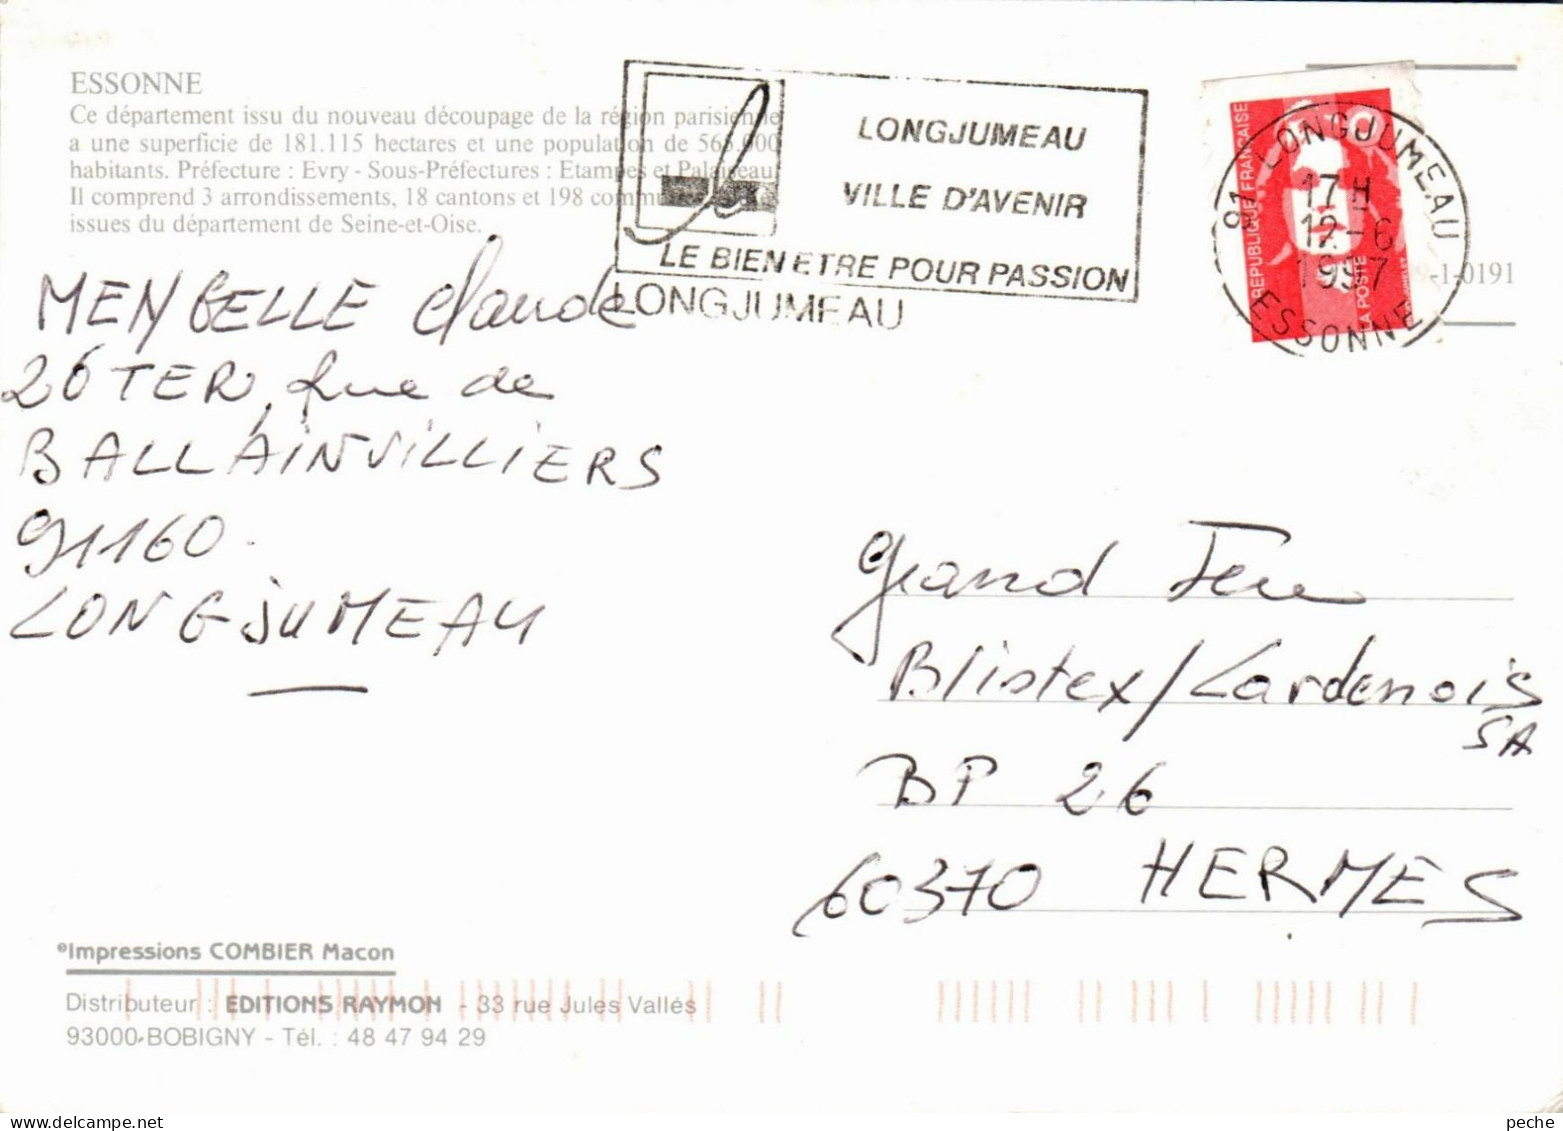 ESSONNE
Ce département issu du nouveau découpage de la région parisienne
a une superficie de 181.115 hectares et une population de 565.000
habitants. Préfecture : Evry - Sous-Préfectures : Etampes et Palaiseau
Il comprend 3 arrondissements, 18 cantons et 198 communes
issues du département de Seine-et-Oise.
LONGJUMEAU
VILLE D'AVENIR
LE BIEN ETRE POUR PASSION
LONGJUMEAU
91 LONGJUMEAU
17 H
12-6
1997
ESSONNE
REPUBLIQUE FRANÇAISE
LA POSTE
-1-0191
Claude
26 TER, Rue de
BALLAINVILLIERS
91160
LONGJUMEAU
Grand Jeu
Blistex/Lardenois
SA
BP 26
60370 HERMES
Impressions COMBIER Macon
Distributeur : EDITIONS RAYMON - 33 rue Jules Vallés
93000-BOBIGNY - Tél. : 48 47 94 29
peche